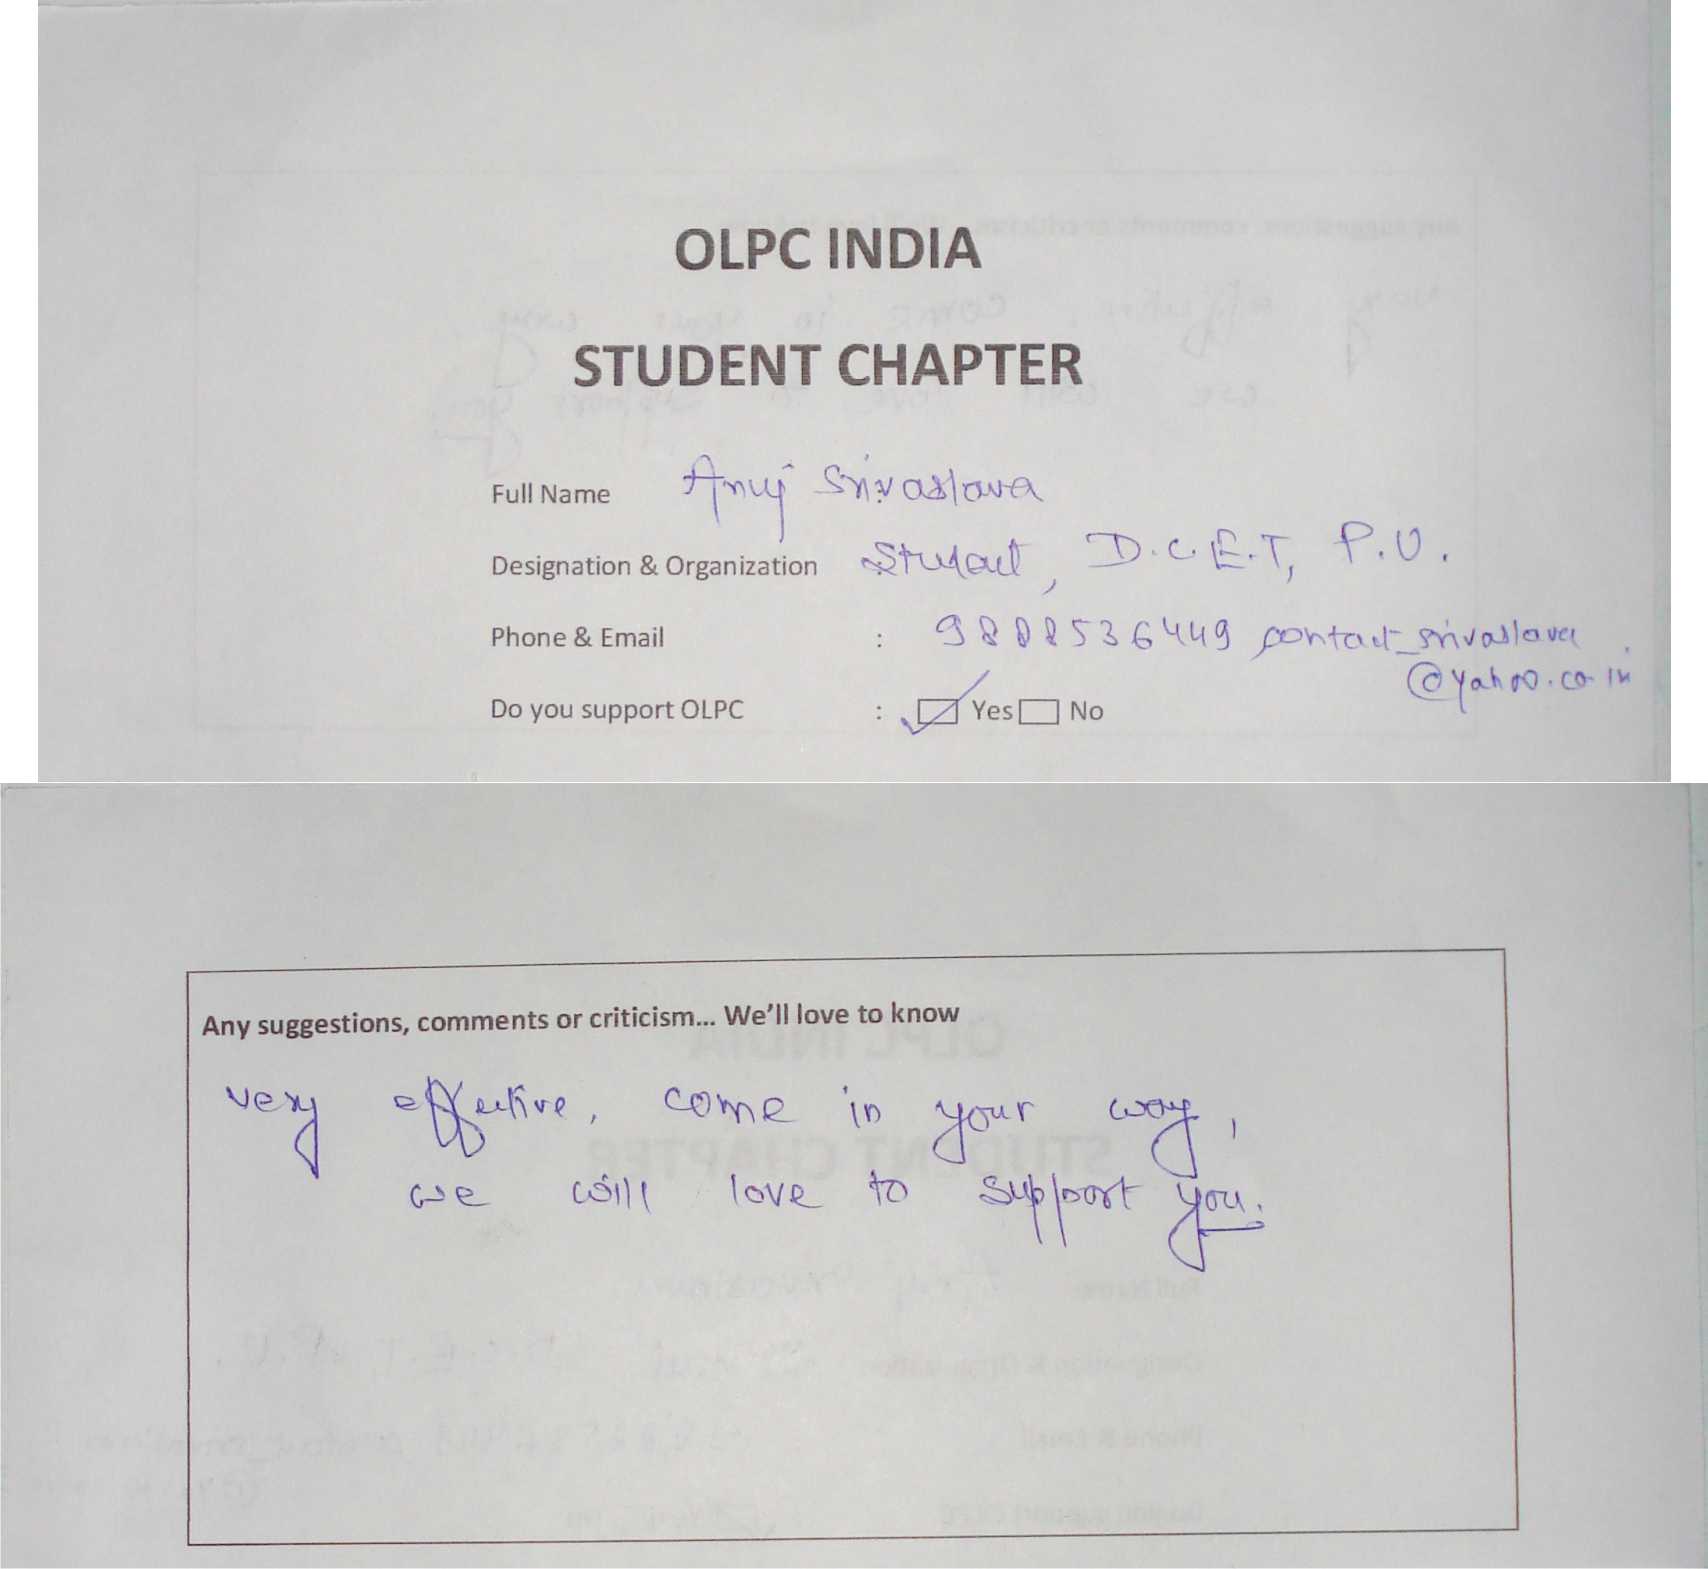 OLPC INDIA
STUDENT CHAPTER
Full Name Anuj Srivastava
Designation & Organization Student, D.C.E.T, P.U.
Phone & Email : 9888536449 contact_srivastava
@yahoo.co.in
Do you support OLPC : Yes No
Any suggestions, comments or criticism... We'll love to know
very effective, come in your way,
we will love to support you.